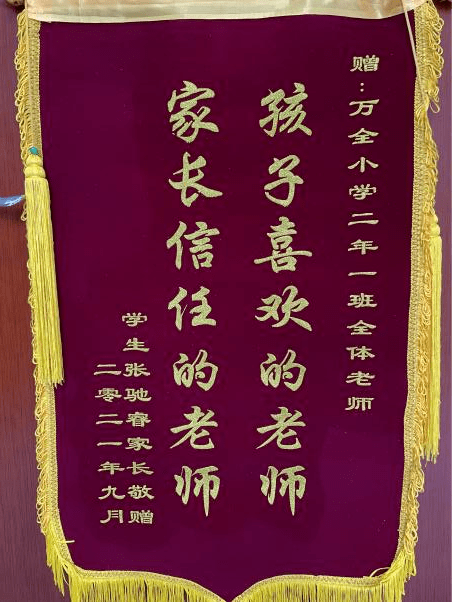 赠：万全小学二年一班全体老师
孩子喜欢的老师
家长信任的老师
学生张驰睿家长敬赠
二零二一年九月